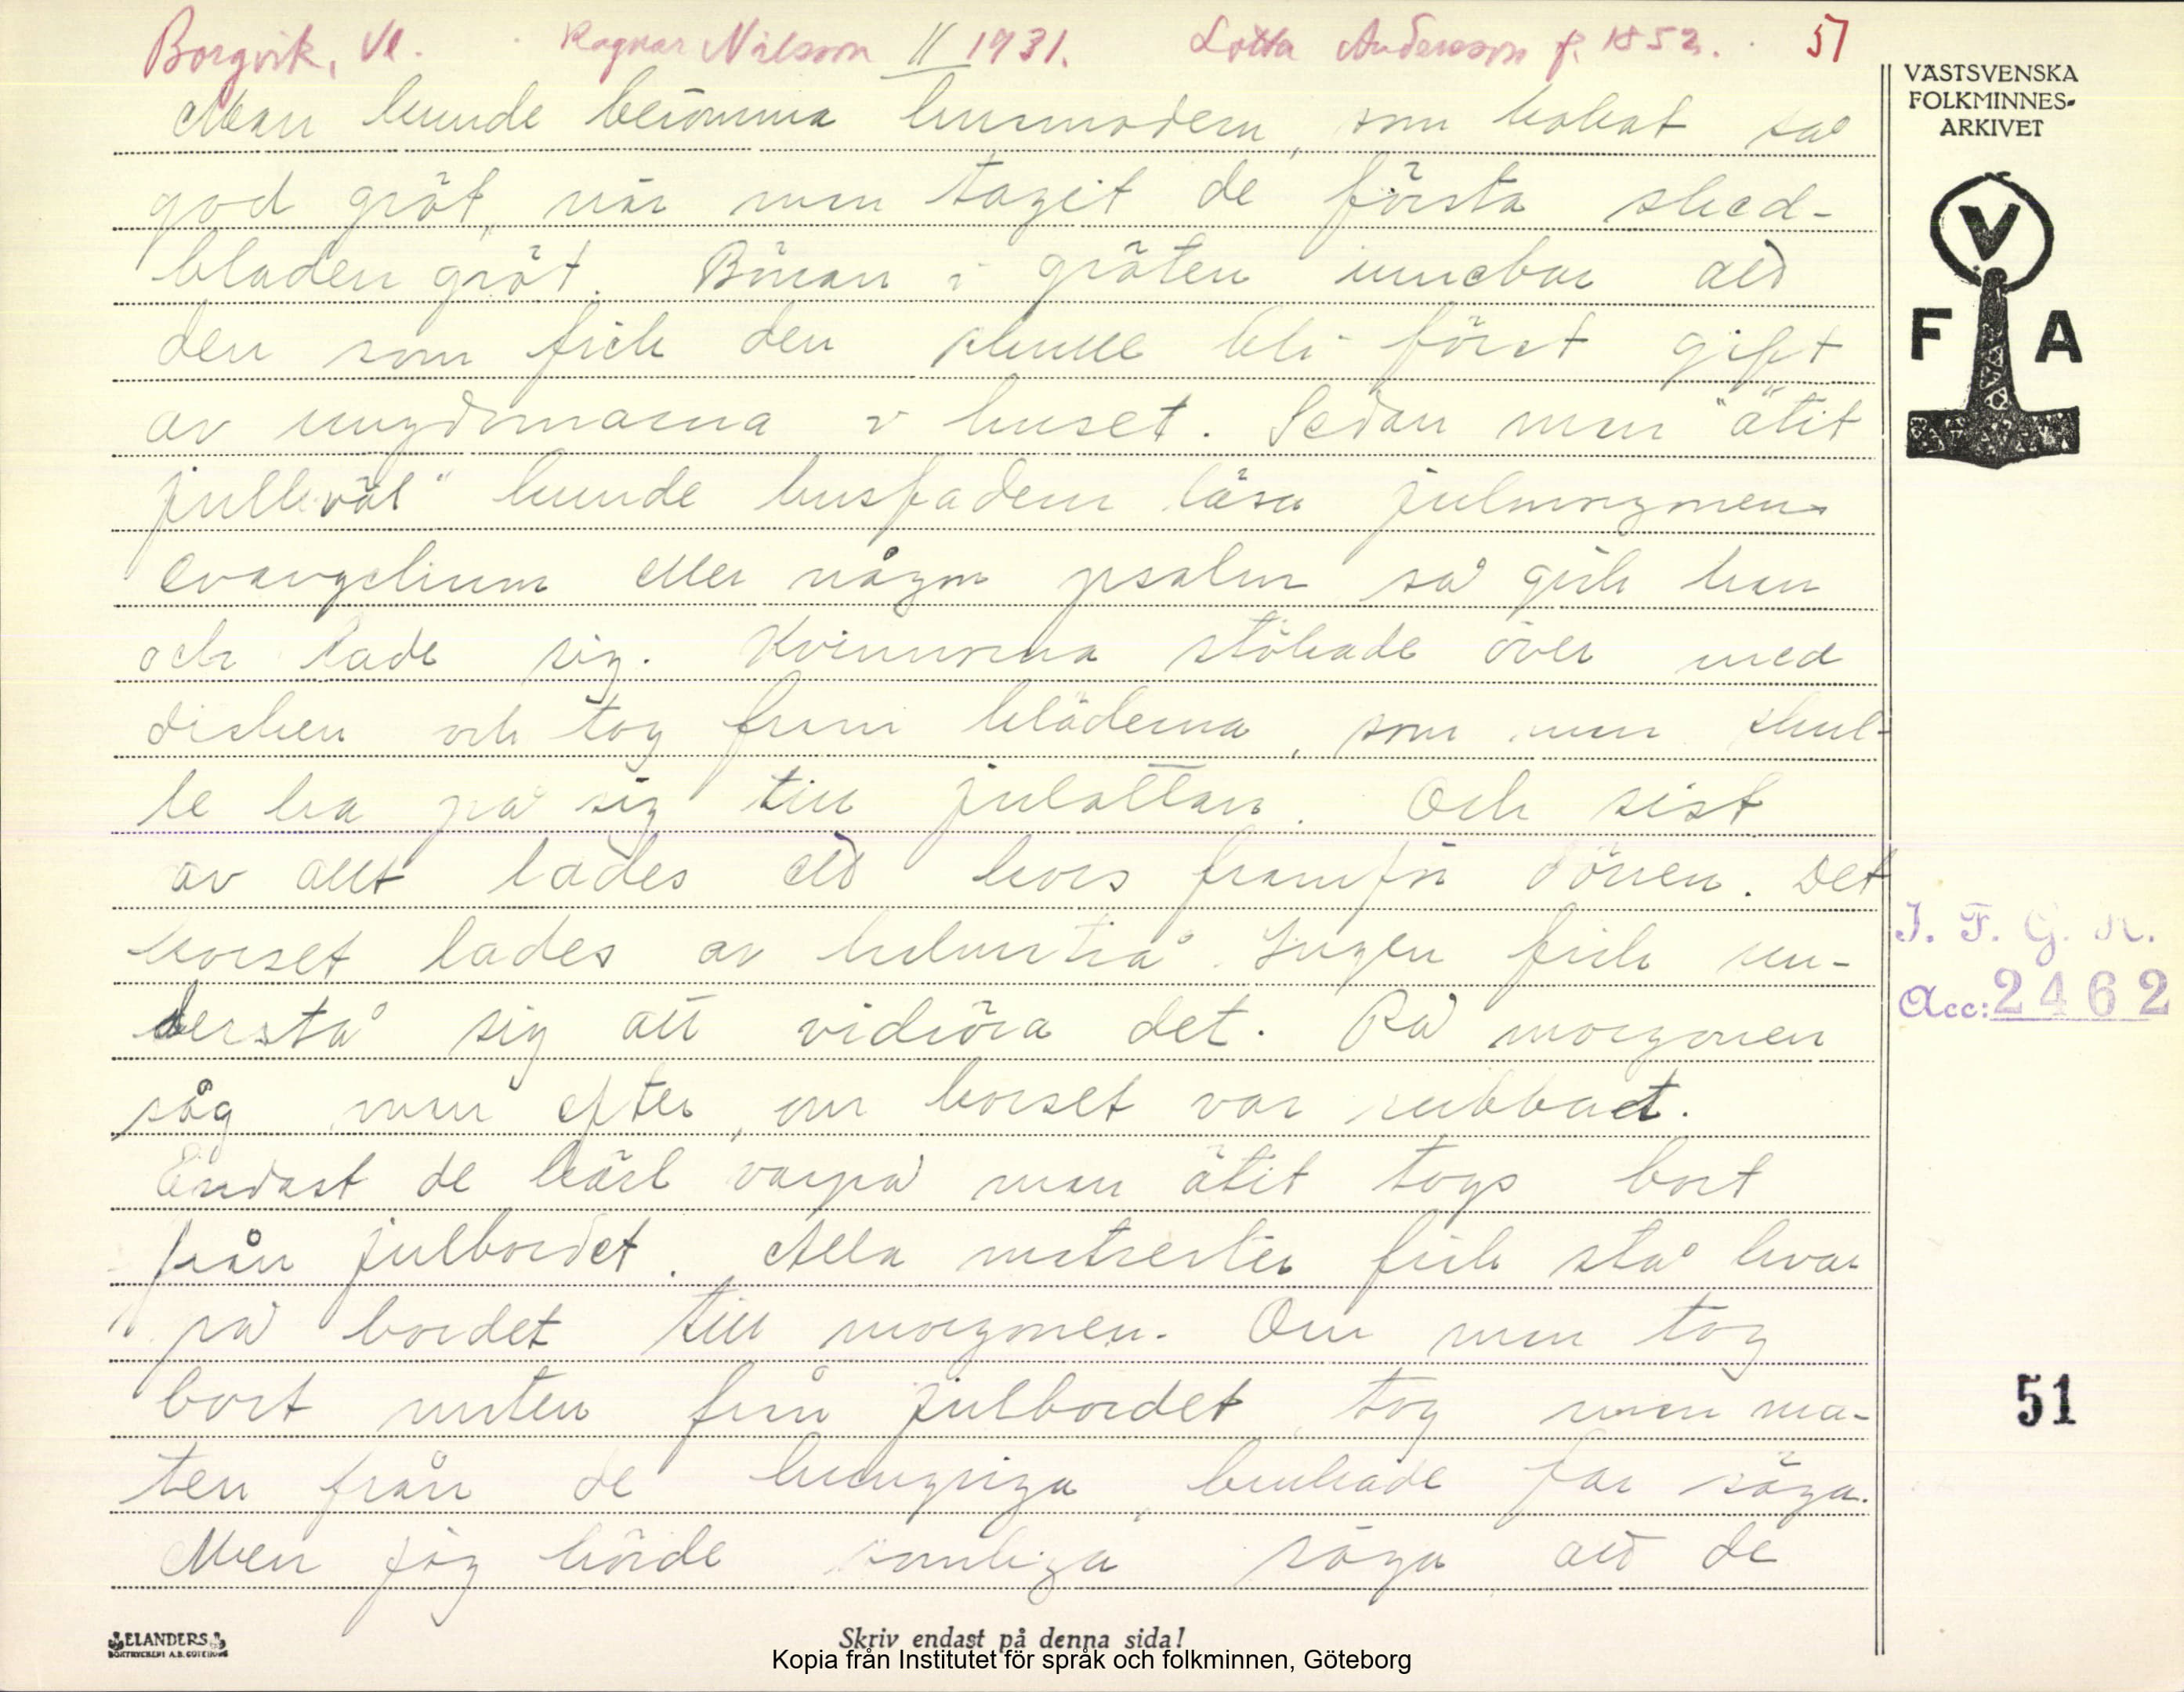 Borgvik, Vl. Ragnar Nilsson II 1931. Lotta Andersson f. 1852. 51
VÄSTSVENSKA
FOLKMINNES-
ARKIVET
V
F A
Man kunde berömma husmodern, som kokat så
god gröt, när man tagit de första sked-
bladen gröt. Bönan i gröten innebar att
den som fick den skulle bli först gift
av ungdomarna i huset. Sedan man "ätit
julkväl" kunde husfadern läsa julmorgonens
evangelium eller någon psalm så gick han
och lade sig. Kvinnorna stökade över med
disken och tog fram kläderna, som man skul-
le ha på sig till julottan. Och sist
av allt lades ett kors framför dörren. Det
korset lades av halmstrå. Ingen fick un-
derstå sig att vidröra det. På morgonen
såg man efter, om korset var rubbat.
Endast de kärl varpå man ätit togs bort
från julbordet. Alla matrester fick stå kvar
på bordet till morgonen. Om man tog
bort maten från julbordet tog man ma-
ten från de hungriga, brukade far säga.
Men jag hörde somliga säga att de
I. F. G. H.
Acc: 2462
51
ELANDERS
BOKTRYCKERI A.B. GÖTEBORG
Skriv endast på denna sida!
Kopia från Institutet för språk och folkminnen, Göteborg